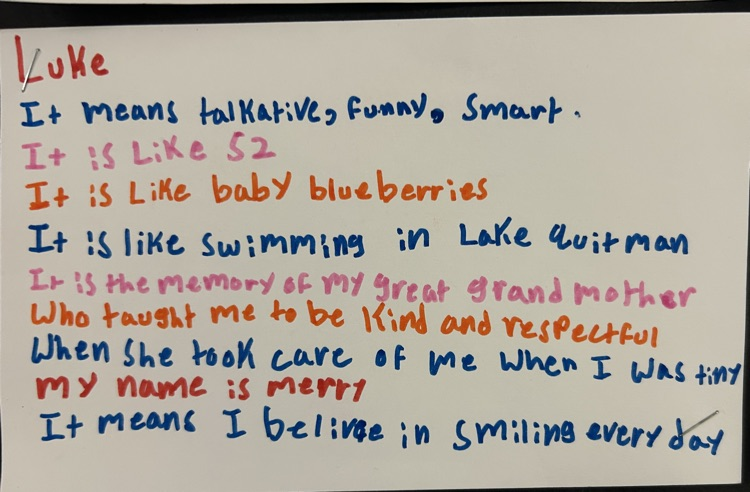 Luke
It means talkative, funny, smart.
It is Like 52
It is Like baby blueberries
It is like swimming in Lake Quitman
It is the memory of my great grand mother
Who taught me to be kind and respectful
When she took care of me when I was tiny
my name is merry
It means I belirve in smiling every day